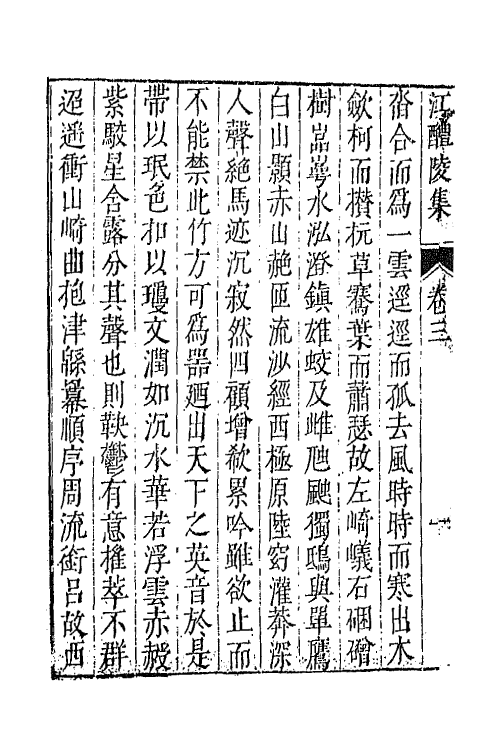 江醴陵集 卷三 十
沓合而爲一雲逕逕而孤去風時時而寒出木
歛柯而攢杬草騫葉而蕭瑟故左崎嶬右硱磳
樹嵓崿水泓澄鎮雄蛟及雌虺颰獨鴟與單鷹
白山顥赤山赩匝流沙經西極原陸窈灌莽深
人聲絶馬迹沉寂然四顧增欷累吟雖欲止而
不能禁此竹方可爲器廼出天下之英音於是
帶以珉色扣以瓊文潤如沉水華若浮雲赤㲉
紫駁星含露分其聲也則鞅鬱有意搉萃不羣
迢遞衝山崎曲抱津緜羃順序周流銜呂故西